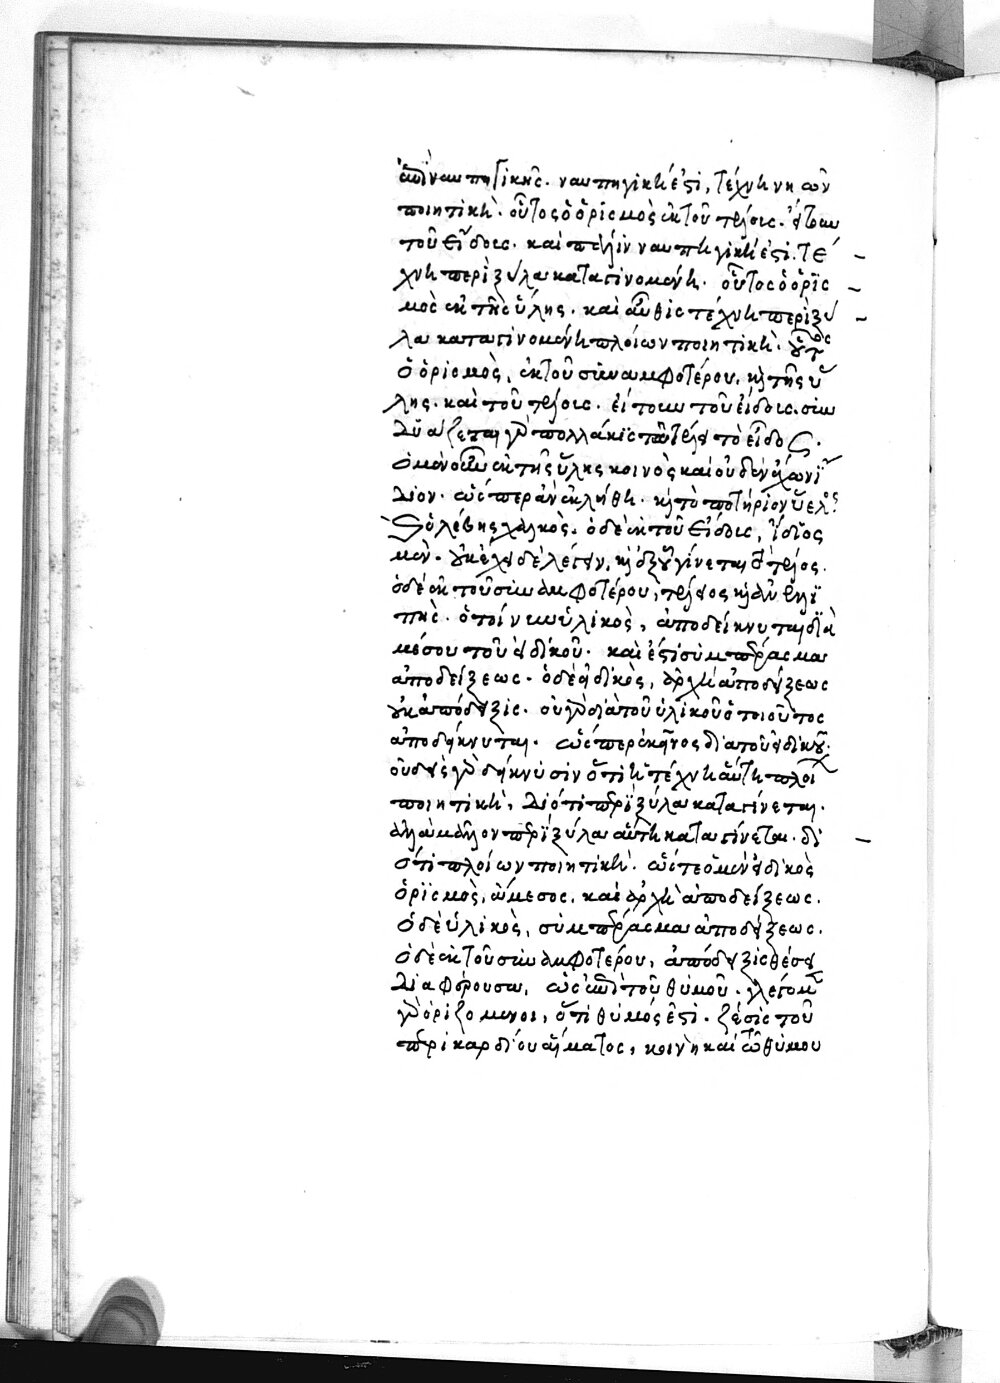 ἐπὶ ναυπηγικῆς. ναυπηγική ἐστι, τέχνη νηῶν
ποιητική. οὗτος ὁ ὁρισμὸς ἐκ τοῦ τέλους. ἤτοι
τοῦ εἴδους. καὶ πάλιν ναυπηγική ἐστι τέ
χνη περὶ ξύλα καταγινομένη. οὗτος ὁ ὁρισ
μὸς ἐκ τῆς ὕλης. καὶ αὖθις τέχνη περὶ ξύ
λα καταγινομένη πλοίων ποιητική. οὗτος
ὁ ὁρισμὸς, ἐκ τοῦ συναμφοτέρου. καὶ τῆς ὕ
λης. καὶ τοῦ τέλους. ἤτοι τοῦ εἴδους. συν
δυάζεται γὰρ πολλάκις τῷ τέλει τὸ εἶδος.
ὁ μὲν οὖν ἐκ τῆς ὕλης κοινὸς καὶ οὐδὲν ἔχων ἴ
διον. ὥσπερ ἂν ἐκλήθη. καὶ τὸ ποτήριον ὕελος
ὁ λέβης χαλκὸς. ὁ δὲ ἐκ τοῦ εἴδους, ἴδιος
μὲν. οὐκ ἔχει δὲ λέγειν, καὶ ἐξ οὗ γίνεται τὸ τέλος.
ὁ δὲ ἐκ τοῦ συναμφοτέρου, τέλειος καὶ ἀνελλι
πὴς. ὁ τοίνυν ὑλικὸς, ἀποδείκνυται διὰ
μέσου τοῦ εἰδικοῦ. καὶ ἔστι συμπέρασμα
ἀποδείξεως. ὁ δὲ εἰδικὸς, ἀρχὴ ἀποδείξεως
οὐκ ἀπόδειξις. οὐ γὰρ διὰ τοῦ ὑλικοῦ ὁ τοιοῦτος
ἀποδείκνυται. ὥσπερ ἐκεῖνος διὰ τοῦ εἰδικοῦ.
οὐδεὶς γὰρ δείκνυσιν ὅτι ἡ τέχνη αὕτη πλοίων
ποιητικὴ, διότι περὶ ξύλα καταγίνεται.
ἀλλὰ μᾶλλον περὶ ξύλα αὕτη καταγίνεται. δι
ότι πλοίων ποιητική. ὥστε ὁ μὲν εἰδικὸς
ὁρισμὸς, ἄμεσος. καὶ ἀρχὴ ἀποδείξεως.
ὁ δὲ ὑλικὸς, συμπέρασμα ἀποδείξεως.
ὁ δὲ ἐκ τοῦ συναμφοτέρου, ἀπόδειξις θέσει
διαφέρουσα, ὡς ἐπὶ τοῦ θυμοῦ. λέγομεν
γὰρ ὁριζόμενοι, ὅτι θυμός ἐστι. ζέσις τοῦ
περὶ καρδίου αἵματος, κοινὴ καὶ τῷ θύμου